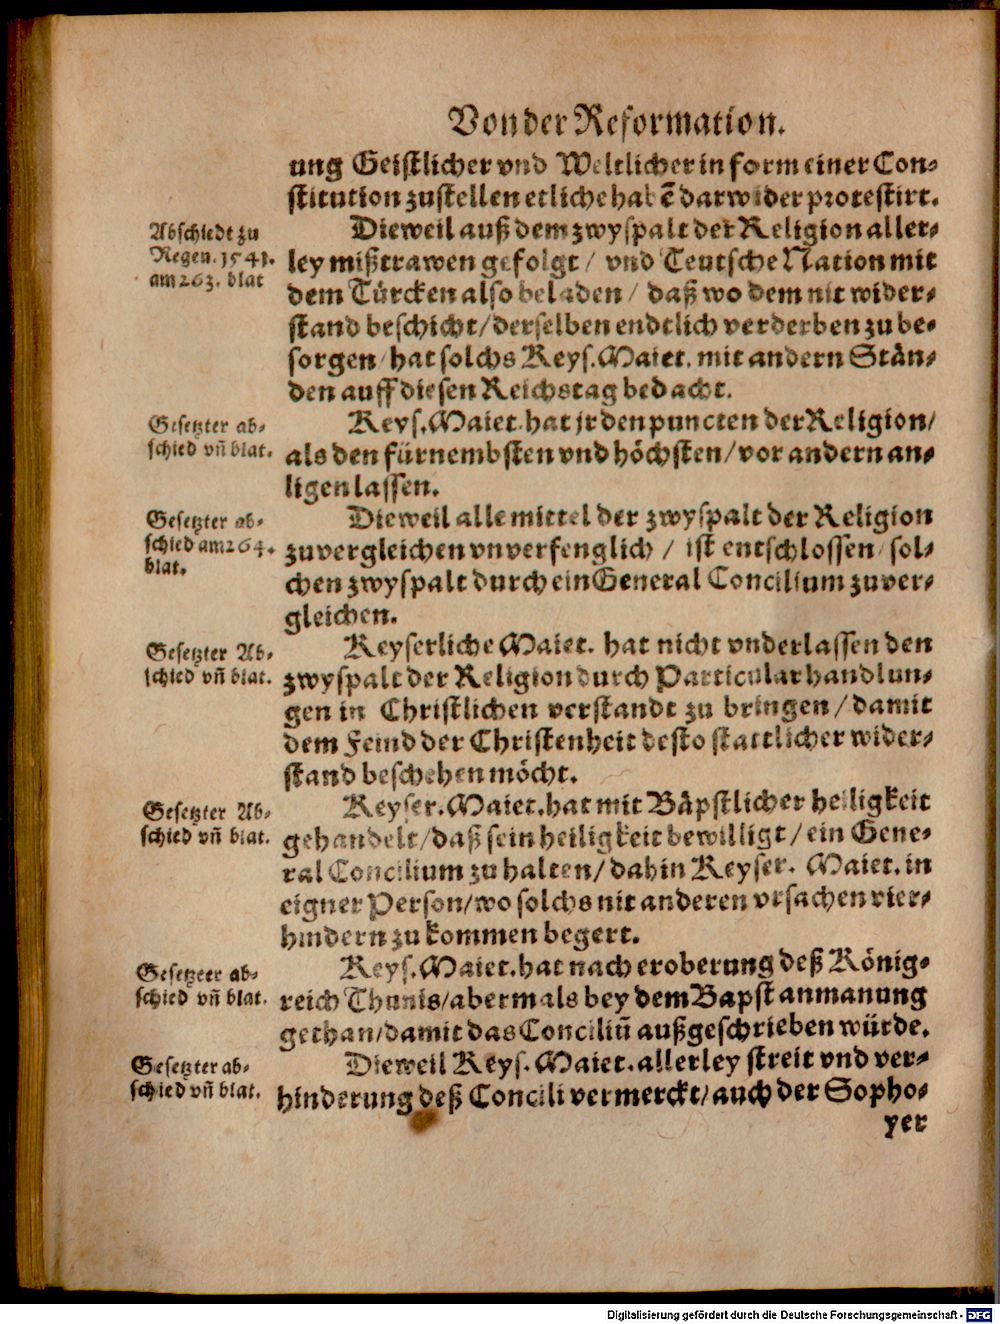 Von der Reformation.
ung Geistlicher vnd Weltlicher in form einer Con-
stitution zustellen etliche habẽ darwider protestirt.
Abschiedt zu
Regen. 1541.
am 263. blat
Dieweil auß dem zwyspalt der Religion aller-
ley mißtrawen gefolgt / vnd Teutsche Nation mit
dem Türcken also beladen / daß wo dem nit wider-
stand beschicht/derselben endtlich verderben zu be-
sorgen/hat solchs Keys. Maiet. mit andern Stån-
den auff diesen Reichstag bedacht.
Gesetzter ab-
schied vñ blat.
Keys. Maiet. hat jr den puncten der Religion/
als den fürnembsten vnd höchsten/vor andern an-
ligen lassen.
Gesetzter ab-
schied am 264.
blat.
Dieweil alle mittel der zwyspalt der Religion
zuvergleichen vnverfenglich / ist entschlossen/sol-
chen zwyspalt durch ein General Concilium zuver-
gleichen.
Gesetzter Ab-
schied vñ blat.
Keyserliche Maiet. hat nicht vnderlassen den
zwyspalt der Religion durch Particular handlun-
gen in Christlichen verstandt zu bringen/damit
dem Feind der Christenheit desto stattlicher wider-
stand beschehen möcht.
Gesetzter Ab-
schied vñ blat.
Keyser. Maiet. hat mit Båpstlicher heiligkeit
gehandelt/daß sein heiligkeit bewilligt/ein Gene-
ral Concilium zu halten/dahin Keyser. Maiet. in
eigner Person/wo solchs nit anderen vrsachen vier-
hindern zu kommen begert.
Gesetzter ab-
schied vñ blat.
Keys. Maiet. hat nach eroberung deß König-
reich Thunis/abermals bey dem Bapst anmanung
gethan/damit das Conciliũ außgeschrieben würde.
Gesetzter ab-
schied vñ blat.
Dieweil Keys. Maiet. allerley streit vnd ver-
hinderung deß Concili vermerckt/auch der Sopho-
yer
Digitalisierung gefördert durch die Deutsche Forschungsgemeinschaft - DFG